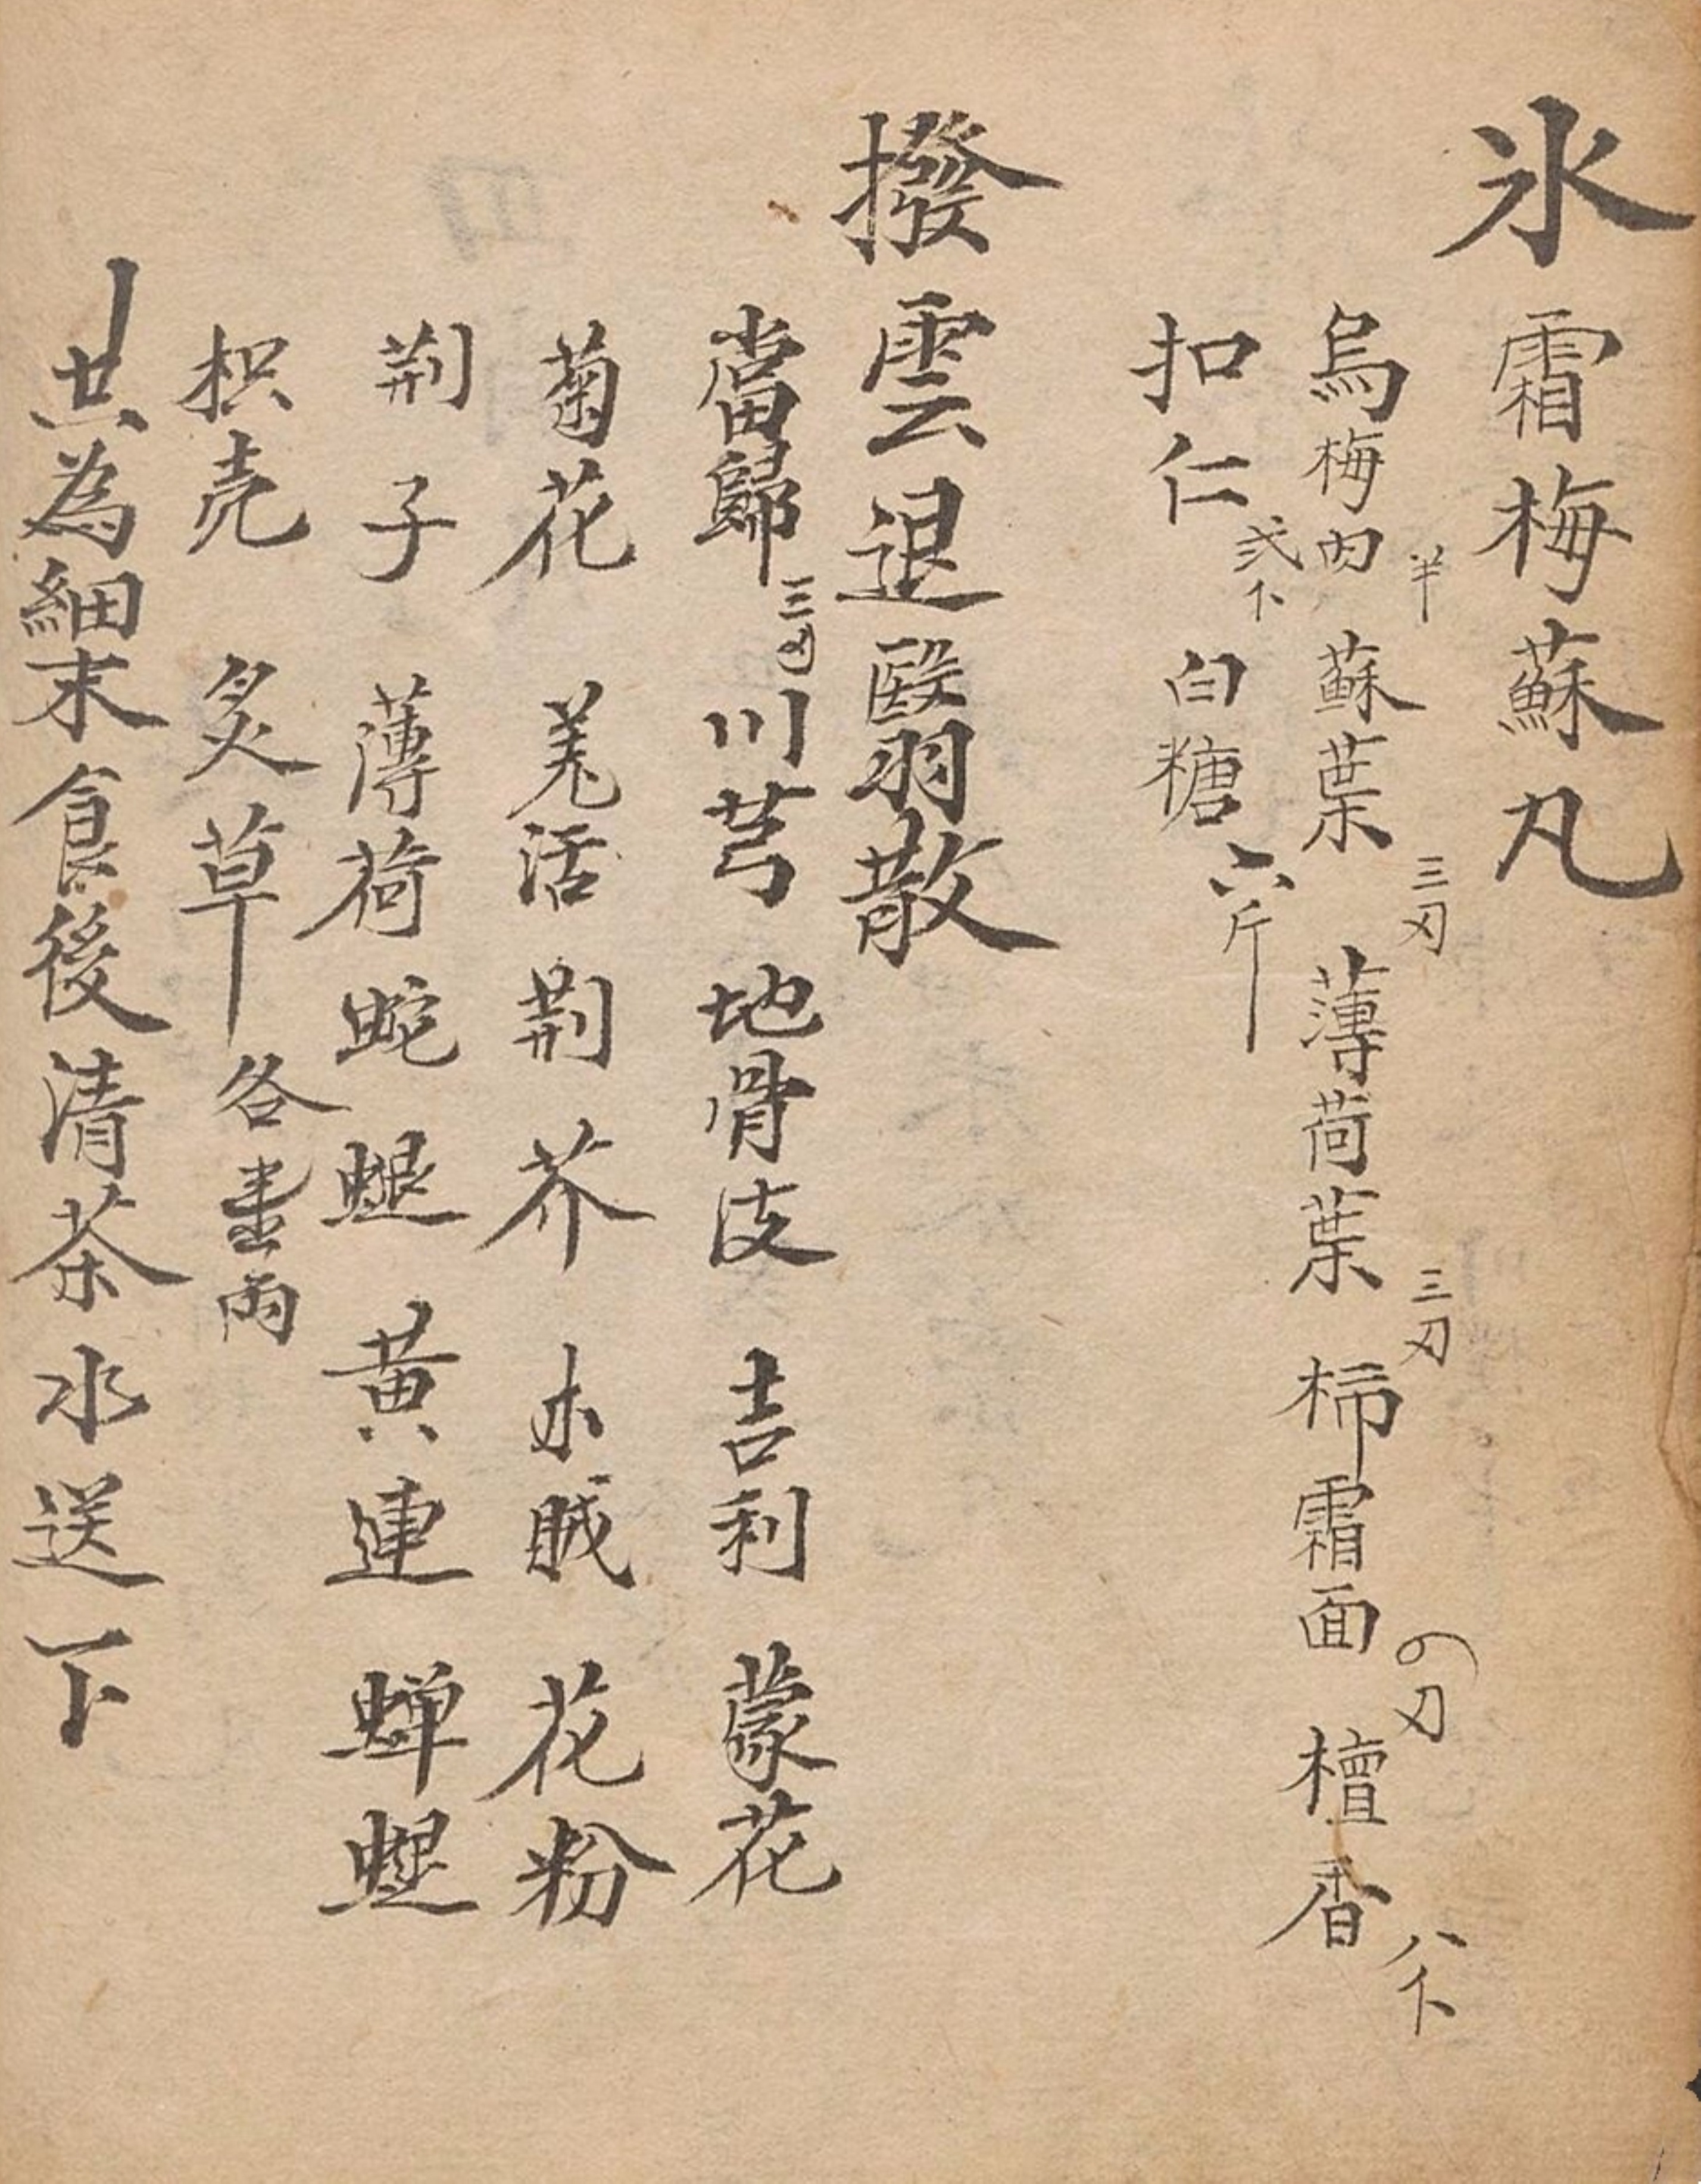 氷霜梅蘇丸
烏梅肉半蘇葉三刃薄荷葉三刃柿霜面刃檀香八卜
扣仁弍卜白糖六斤
撥雲退翳散
當歸三川芎地骨皮吉利蒙花
菊花羌活荆芥木賊花粉
荆子薄荷蛇蜕黄連蟬蜕
枳壳炙草各壹両
共為細末食後清茶水送下